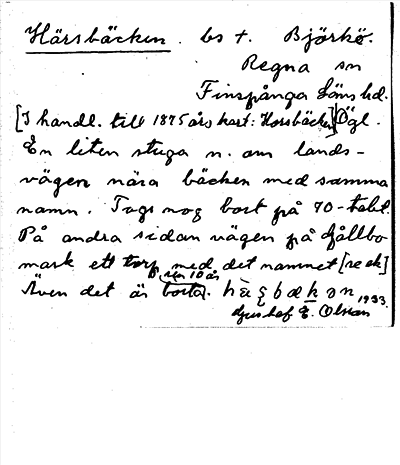 Härsbäcken. bs t. Björke.
Regna sn
Finspånga läns hd.
[I handl. till 1875 års kart: Horsbäcken] Ögl.
En liten stuga n. om lands-
vägen nära bäcken med samma
namn. Togs nog bort på 70-talet.
På andra sidan vägen på Fjällbo
mark ett torp med det namnet [re ck]
sen 10 år
Även det är borta.
1933.
E. Olsson